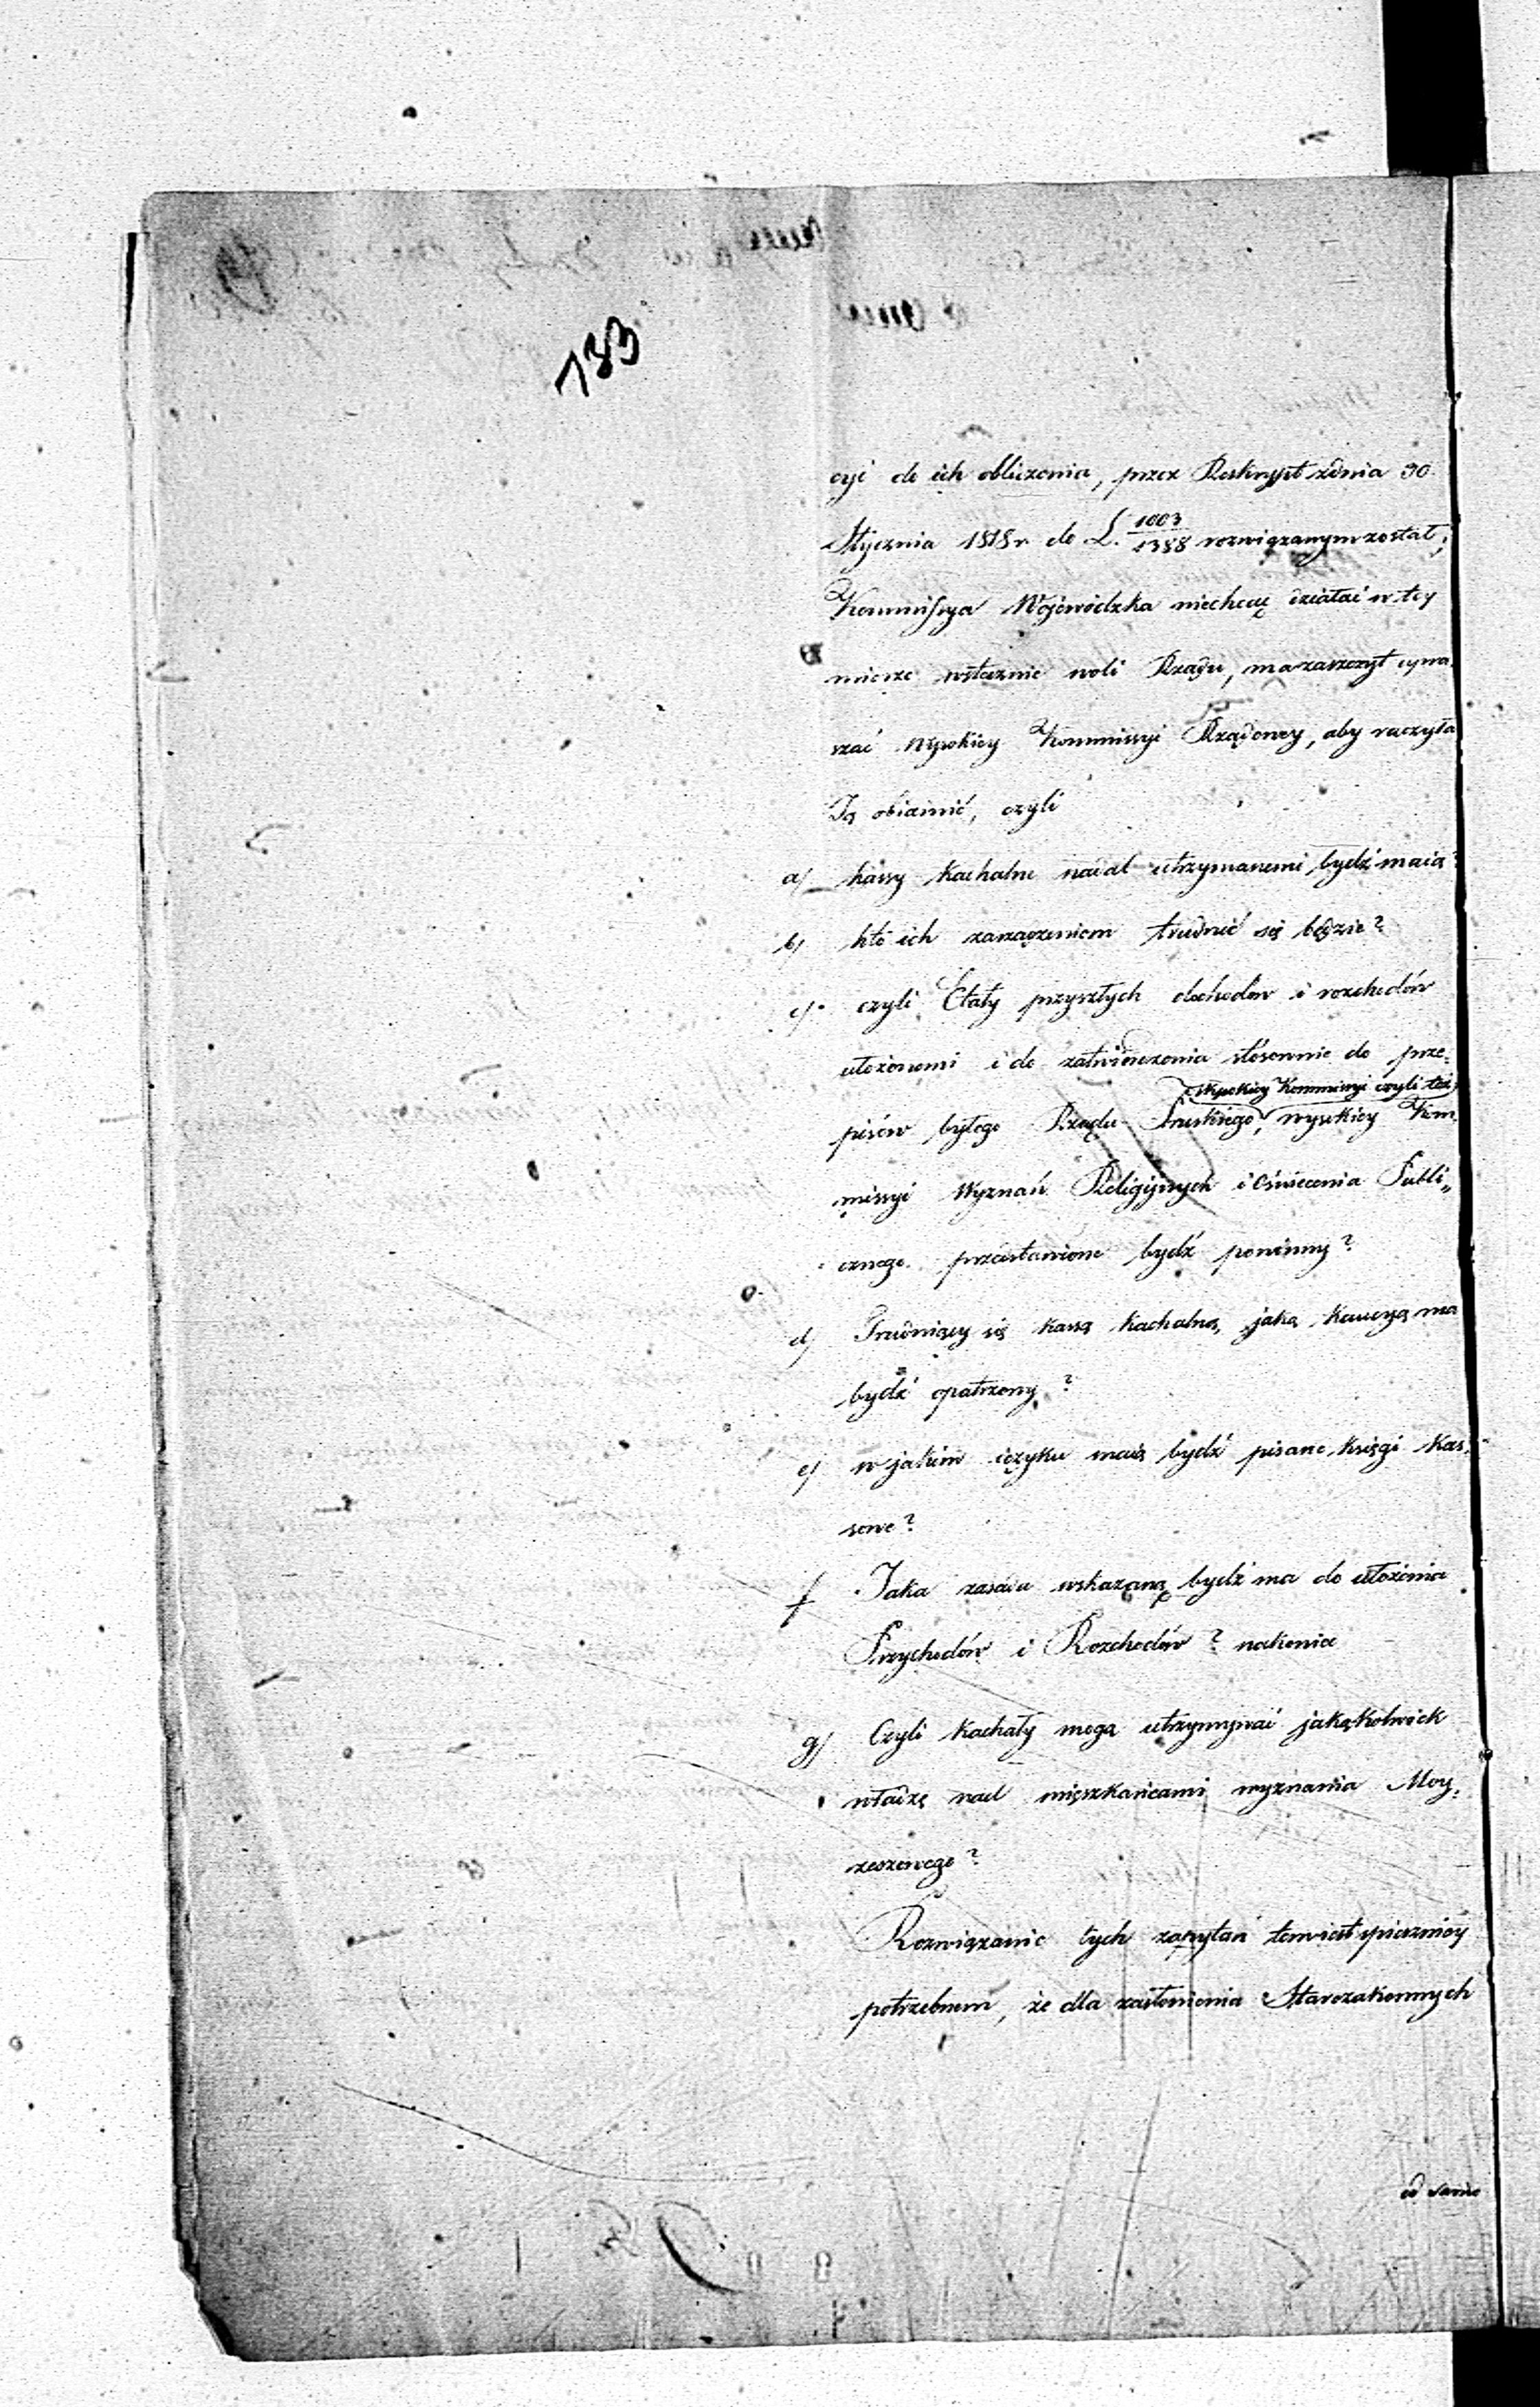 133
cyi do ich obliczenia, przez Reskrypt z dnia 30
Stycznia 1818 r. do L. 1003/1388 rozwiązanym został;
Kommissya Wojewódzka niechcąc działać w tey
mierze wstecznie woli Rządu, ma zaszczyt upra-
szać Wysokiey Kommissyi Rządowey, aby raczyła
Ją obiaśnić, czyli
a/ kassy Kachalne nadal utrzymanemi bydź maią?
b/ kto ich zarządzeniem trudnić się będzie?
c/ czyli Etaty przyszłych dochodów i rozchodów
ułożonemi i do zatwierdzenia stosownie do prze-
Wysokiey Kommissyi czyli też
pisów byłego Rządu Pruskiego, wysokiey Kom-
missyi Wyznań Religijnych i Oświecenia Publi„
cznego przedstawione bydź powinny?
d/ Trudniący się kassą kachalną, jaką kaucyą ma
bydź opatrzony?
e/ w jakim ięzyku maią bydź pisane księgi kas-
sowe?
f Jaka zasada wskazaną bydź ma do ułożenia
Przychodów i Rozchodów? nakoniec
g/ Czyli Kachały mogą utrzymywać jakąkolwiek
władzę nad mięszkańcami wyznania Moy-
żeszowego?
Rozwiązanie tych zapytań tem iest spieszniey
potrzebnem, że dla zasłonienia Starozakonnych